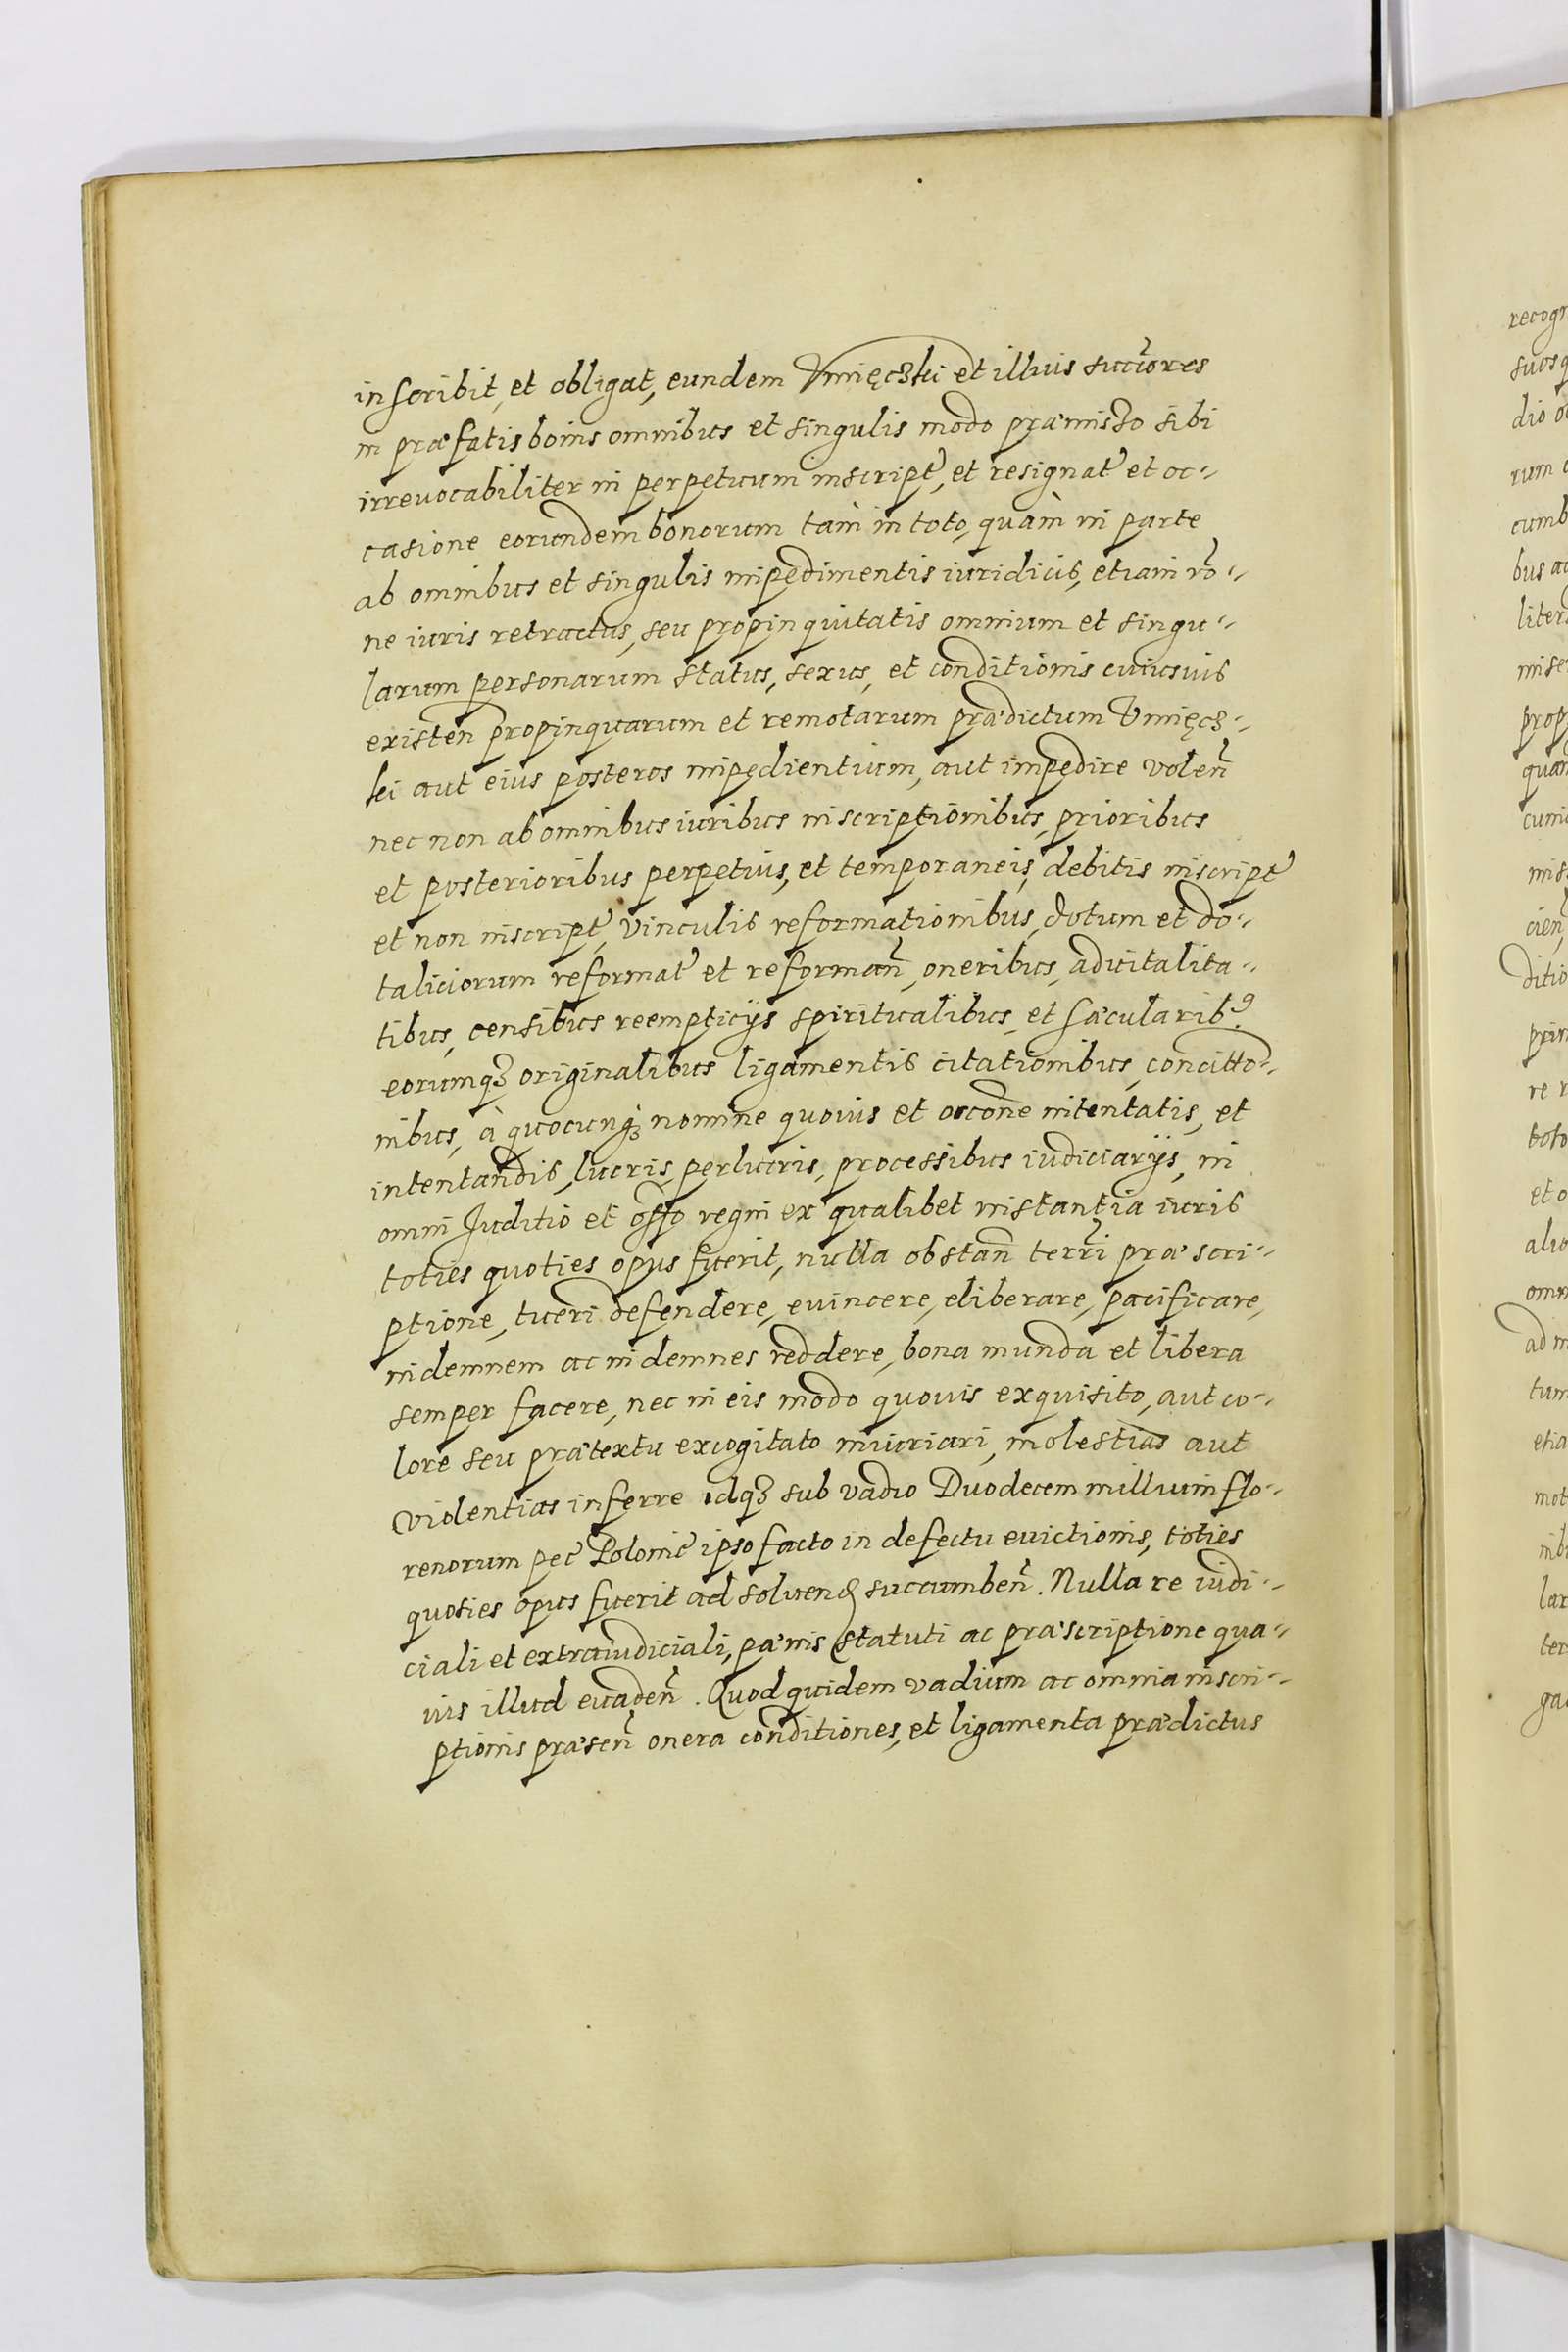 inscribit, et obligat, eundem Vmięczki et illius succ̃ores
in præfatis bonis omnibus et singulis modo præmisso sibi
irrevocabiliter in perpetuum inscript̃, et resignat̃ et oc-
casione eorundem bonorum tam in toto, quàm in parte
ab omnibus et singulis impedimentis iuridicis, etiam rõ-
ne iuris retractus, seu propinquitatis omnium et singu-
larum personarum status, sexus, et conditionis cuiusvis
existeñ propinquarum et remotarum prædictum Vmięcz-
ki aut eius posteros impedientium, aut impedire voleñ
nec non ab omnibus iuribus inscriptionibus, prioribus
et posterioribus perpetuis, et temporaneis, debitis inscript̃
et non inscript̃, vinculis reformationibus, dotum et do-
taliciorum reformat̃ et reformañ, oneribus, advitalita-
tibus, censibus reempticijs spiritualibus, et sæcularib9
eorumqȝ originalibus ligamentis citationibus, concitto-
nibus, à quocunqȝ nomine quovis et occone intentatis, et
intentandis, lucris, perlucris, processibus iudiciarijs, in
omni Juditio et offo regni ex qualibet instantia iuris
toties quoties opus fuerit, nulla obstañ terr̃i præscri-
ptione, tueri defendere, evincere, eliberare, pacificare,
indemnem ac indemnes reddere, bona munda et libera
semper facere, nec in eis modo quovis exquisito, aut co-
lore seu prætextu excogitato iniuriari, molestias aut
violentias inferre idqȝ sub vadio Duodecem millium flo-
renorum pec̃ Polonic̃ ipso facto in defectu evictionis, toties
quoties opus fuerit ad solvend succumbeñ. Nulla re iudi-
ciali et extraiudiciali, pænis statuti ac præscriptione qua-
vis illud evadeñ. Quod quidem vadium ac omnia inscri-
ptionis præseñ onera conditiones, et ligamenta prædictus